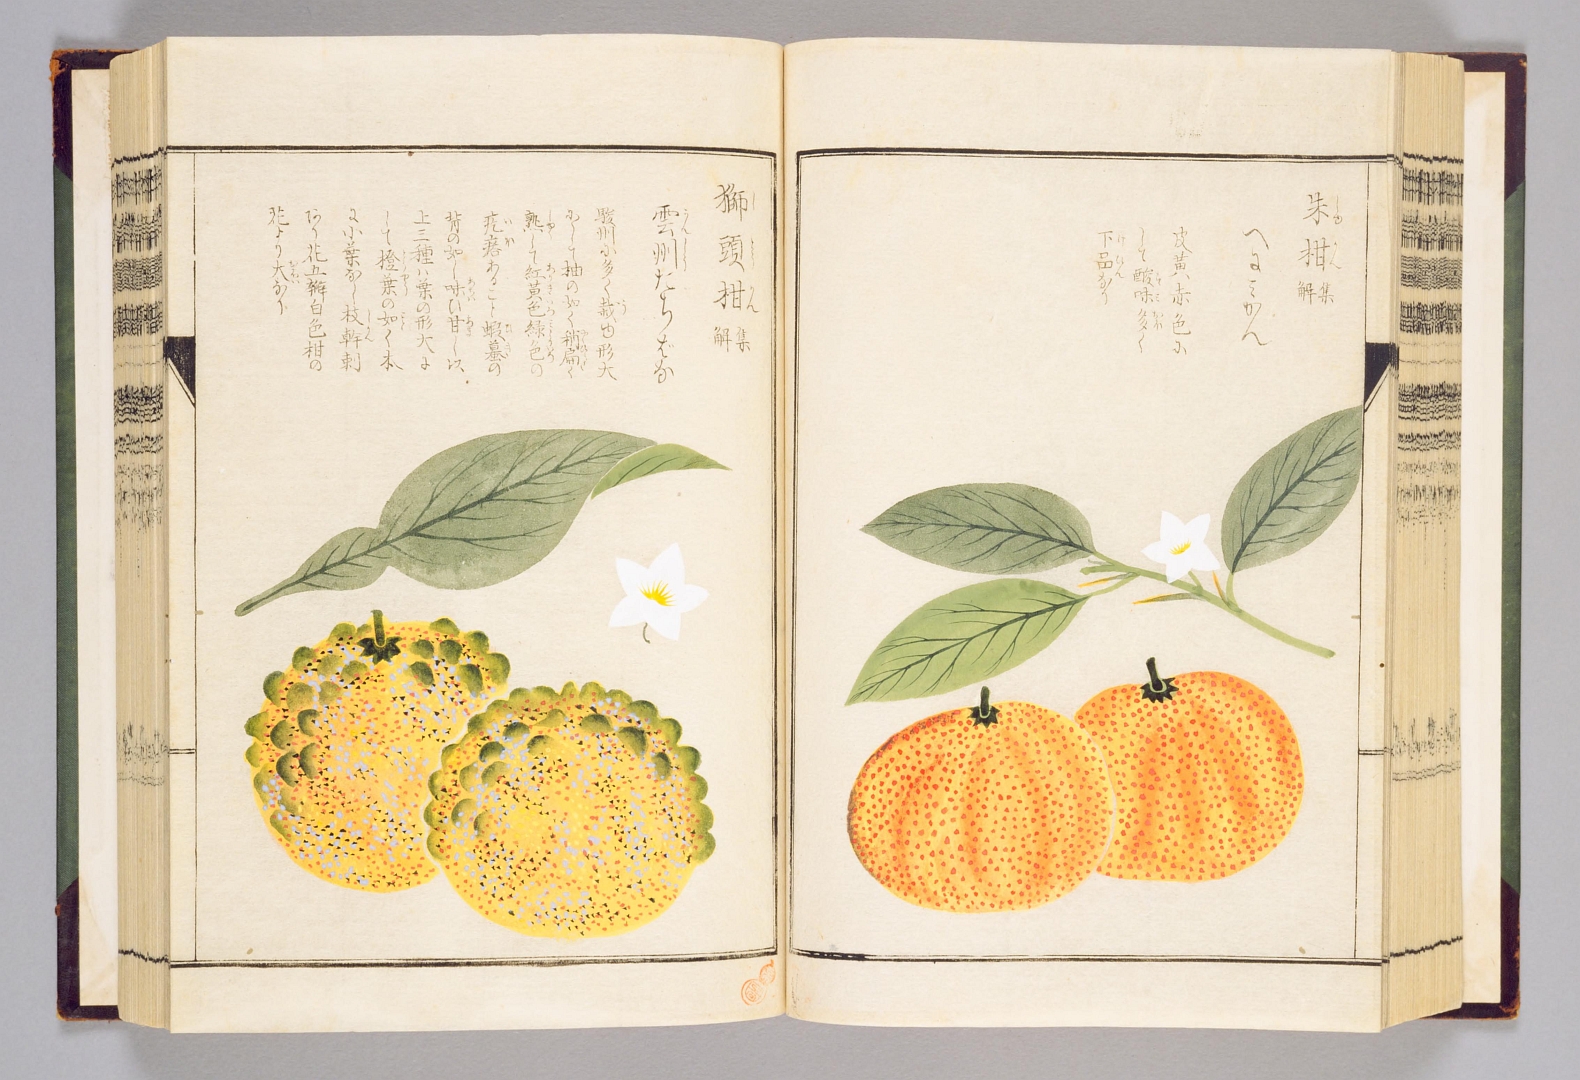 朱柑 集解
べにみかん
皮黄赤色に
して酸味多く
下品なり
獅頭柑 集解
雲州たちばな
駿州に多く栽ゆ形大
にして柚の如く稍扁く
熟して紅黄色緑色の
疣㿔あること蝦蟇の
背の如し味ひ甘し以
上三種ハ葉の形大に
して橙葉の如く本
に小葉なし枝幹刺
あり花五瓣白色柑の
花より大なり